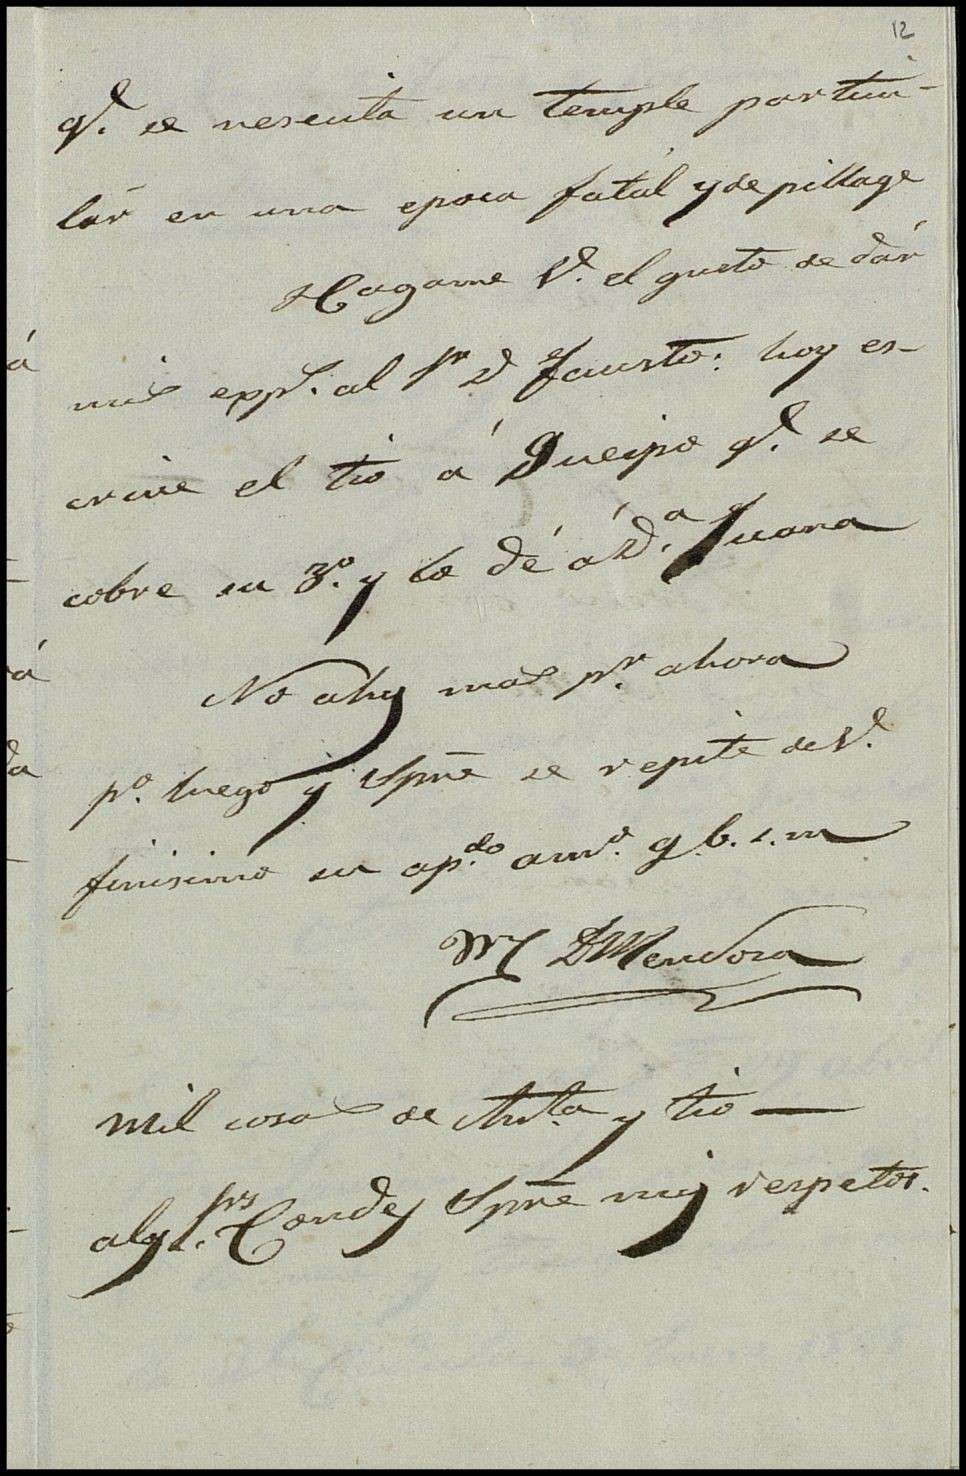 12
qe. se nesecita un temple particu-
lár en una epoca fatál y de pillage
Hagame Vd. el gusto de dár
mis exps. al Sr Dn Fausto: hoy es-
crive el tio á Queipo qe. se
cobre su 3o. y lo dé a Da. Juana
No ahy mas pr. ahora
po. luego y Spre se repite de Vd.
finisimo su apdo. amo. q. b. s. m
Ml D Mendoza
mil cosas de Anta. y tio —
a los Srs. Condes Spre mis respetos.